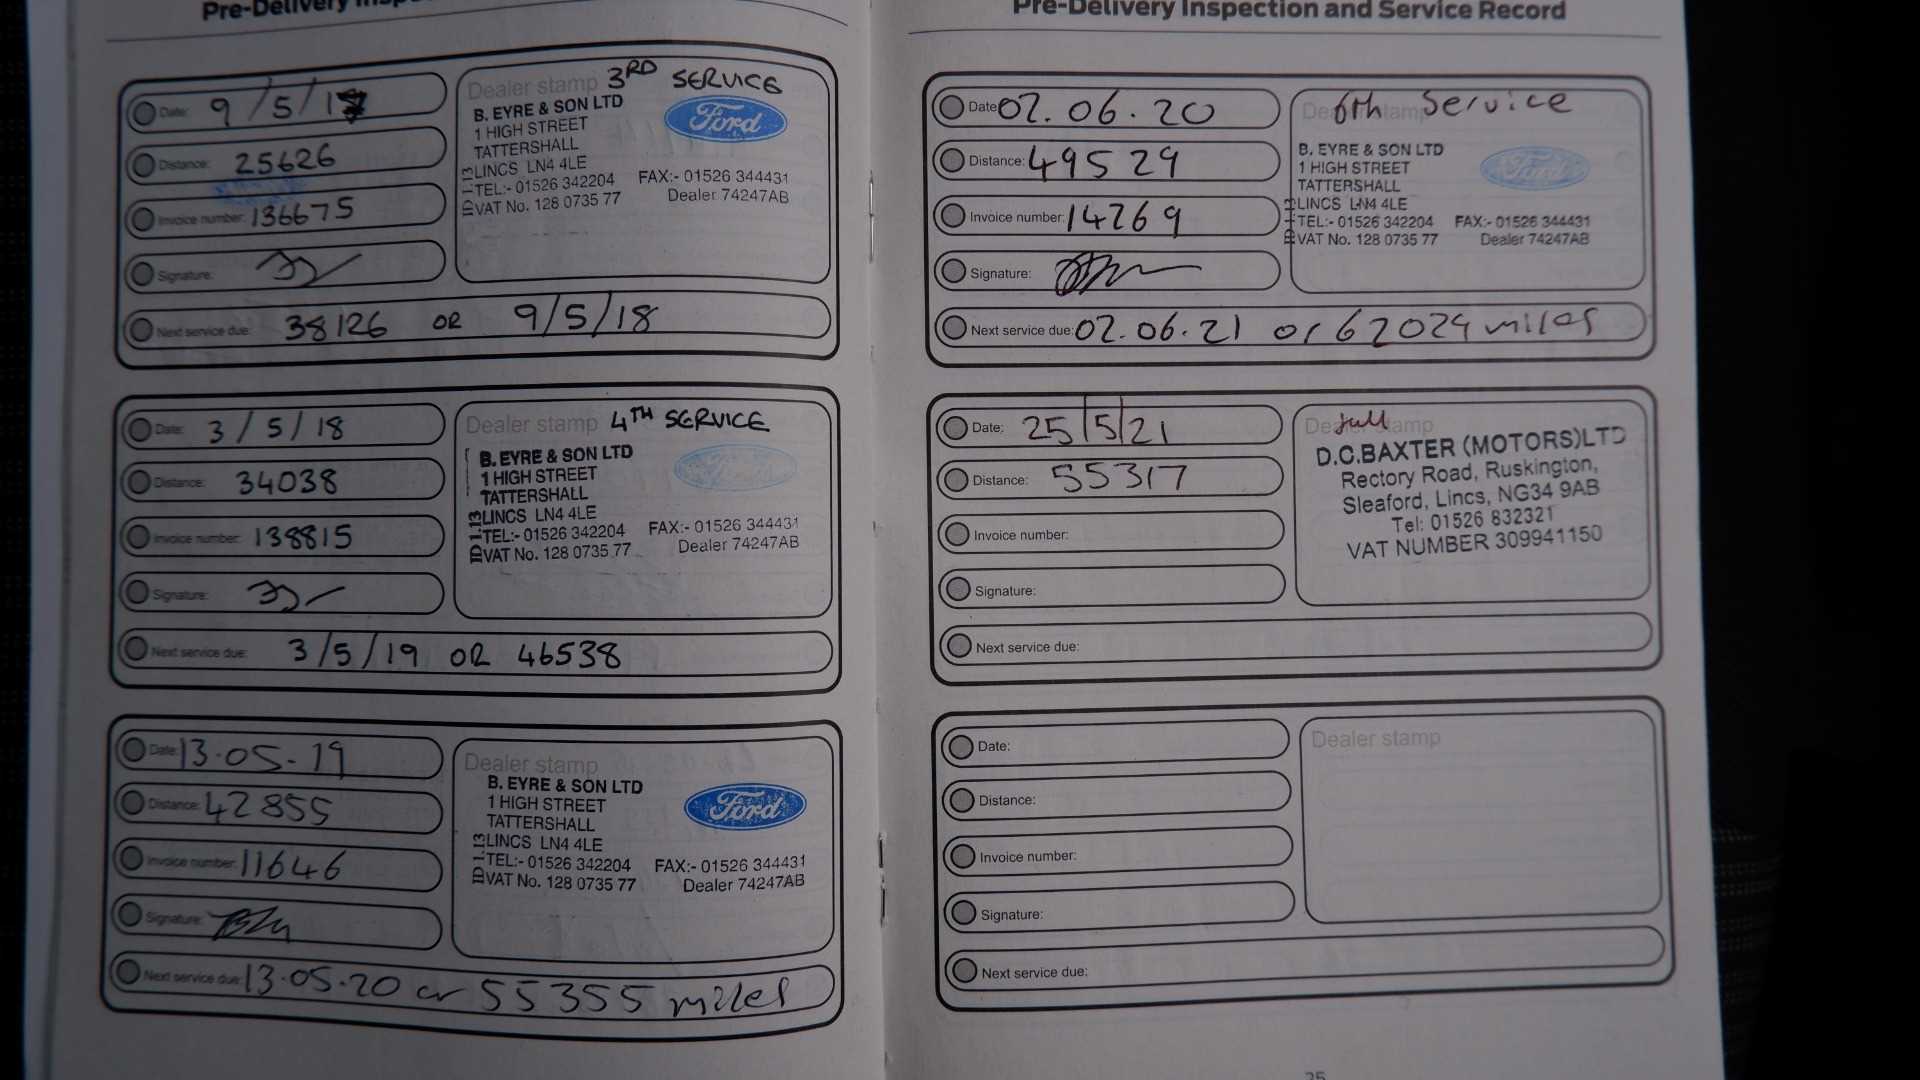 Pre-Delivery
Date: 9/5/17
Distance: 25626
Invoice number: 136675
Signature:
Next service due: 38126 OR 9/5/18
Dealer stamp 3RD SERVICE
B. EYRE & SON LTD
1 HIGH STREET
TATTERSHALL
LINCS LN4 4LE
TEL:- 01526 342204 FAX:- 01526 344431
VAT No. 128 0735 77 Dealer 74247AB
Ford
Date: 3/5/18
Distance: 34038
Invoice number: 138815
Signature:
Next service due: 3/5/19 OR 46538
Dealer stamp 4TH SERVICE
B. EYRE & SON LTD
1 HIGH STREET
TATTERSHALL
LINCS LN4 4LE
TEL:- 01526 342204 FAX:- 01526 344431
VAT No. 128 0735 77 Dealer 74247AB
Ford
Date: 13.05.19
Distance: 42855
Invoice number: 11646
Signature:
Next service due: 13.05.20 or 55355 miles
Dealer stamp
B. EYRE & SON LTD
1 HIGH STREET
TATTERSHALL
LINCS LN4 4LE
TEL:- 01526 342204 FAX:- 01526 344431
VAT No. 128 0735 77 Dealer 74247AB
Ford
Pre-Delivery Inspection and Service Record
Date: 02.06.20
Distance: 49529
Invoice number: 14269
Signature:
Next service due: 02.06.21 or 62029 miles
Dealer stamp 6th Service
B. EYRE & SON LTD
1 HIGH STREET
TATTERSHALL
LINCS LN4 4LE
TEL:- 01526 342204 FAX:- 01526 344431
VAT No. 128 0735 77 Dealer 74247AB
Ford
Date: 25/5/21
Distance: 55317
Invoice number:
Signature:
Next service due:
Dealer stamp
D.C.BAXTER (MOTORS)LTD
Rectory Road, Ruskington,
Sleaford, Lincs, NG34 9AB
Tel: 01526 832321
VAT NUMBER 309941150
Date:
Distance:
Invoice number:
Signature:
Next service due:
Dealer stamp